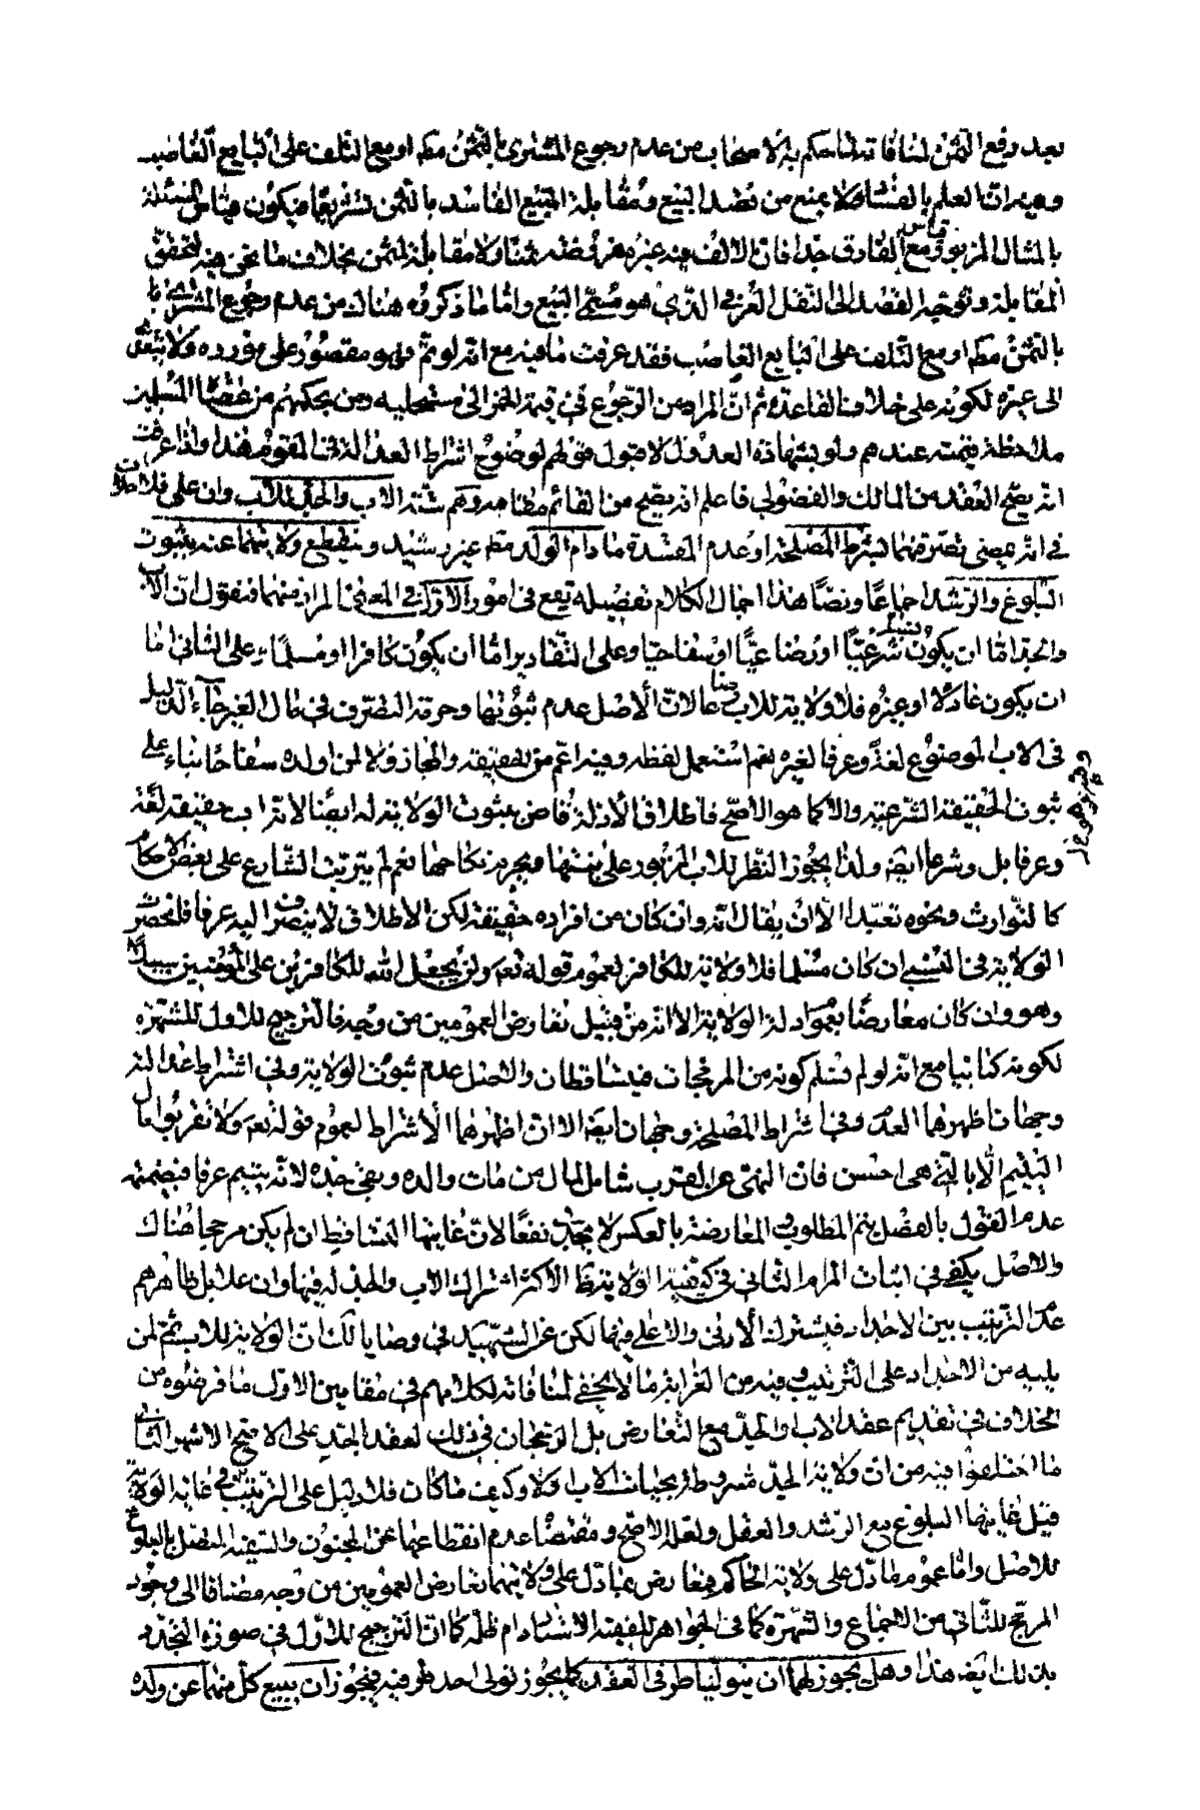 بعد دفع الثمن لمنافاته لما حكم به الاصحاب من عدم رجوع المشترى بالثمن مطه او مع التلف على البايع الغاصب
وفيه ان العلم بالفساد لا يمنع من قصد البيع ومقابلة المبيع الفاسد بالثمن تشريعا فيكون قياس المسئلة
بالمثال المزبور قياس مع الفارق جدا فان الالف فيه غيره لم يقصد ثمنا ولا مقابلة لمثمن بخلاف ما نحن فيه لتحقق
المقابلة وتوجه القصد الى النقل العرفى الذى هو مسمى البيع واما ما ذكروه هناك من عدم رجوع المشترى
بالثمن مطه او مع التلف على البايع الغاصب فقد عرفت ما فيه مع انه لو تم فهو مقصور على مورده ولا يتعدى
الى غيره لكونه على خلاف القاعدة ثم ان المراد من الرجوع فى قيمة الخمر الى مستحليه ومن بحكمهم من
ملاحظة قيمته عندهم ولو بشهادة العدول لا قبول قولهم لوضوح اشتراط العدالة فى المقوم هذا ولما عرفت
انه يصح العقد من المالك والفضولى فاعلم انه يصح من القائم مقامه وهم ستة الاب والجد للاب وان علا فلا خلاف
فى انه يمضى تصرفهما بشرط المصلحة او عدم المفسدة ما دام الولد مطه غير رشيد وينقطع ولايتهما عنه بثبوت
البلوغ والرشد اجماعا ونصا هذا اجمال الكلام تفصيله تقع فى امور الاول فى المعنى المراد منهما فنقول ان الاب
والجد اما ان يكون نسبيا شرعيا او رضاعيا او سفاحيا وعلى التقادير اما ان يكون كافرا او مسلما وعلى الثانى اما
ان يكون عادلا او غيره فلا ولاية للاب رضاعا لان الاصل عدم ثبوتها وحرمة التصرف فى مال الغير جاء الدليل
فى الاب الموضوع لغة وعرفا لغيره نعم استعمل لفظه وفيه اعم من الحقيقة والمجاز ولا لمن اولده سفاحا بناء على
ثبوت الحقيقة الشرعية والا كما هو الاصح فاطلاق الادلة قاض بثبوت الولاية له ايضا لانه اب حقيقة لغة
وعرفا بل وشرعا ايضه ولذا يجوز النظر للاب المزبور على بنتها ويحرم نكاحها نعم لم يترتب الشارع على بعض الاحكام
كالتوارث ونحوه تعبدا الا ان يقال انه وان كان من افراده حقيقة لكن الاطلاق لا ينصرف اليه عرفا فلتحصر
الولاية فى النسبى ان كان مسلما فلا ولاية للكافر لعموم قوله تعه ولن يجعل الله للكافرين على المؤمنين سبيلا
وهو وان كان معارضا بعموم ادلة الولاية الا انه من قبيل تعارض العمومين من وجه فالترجيح للاول للشهرة
لكونه كتابيا مع انه لو لم نسلم كونه من المرجحات فيتساقطان والاصل عدم ثبوت الولاية وفى اشتراط عدالته
وجهان اظهرهما العدم وفى اشتراط المصلحة وجهان ايضه الا ان اظهرهما الاشتراط لعموم قوله تعه ولا تقربوا مال
اليتيم الا بالتى هى احسن فان النهى عن القرب شامل لمال من مات والده وبقى جده لانه يتيم عرفا فبضميمة
عدم القول بالفصل يتم المطلوب والمعارضة بالعكس لا يجدى نفعا لان غايتها التساقط ان لم يكن مرجحا هناك
والاصل يكفى فى اثبات المرام الثانى فى كيفية الولاية ظا الاكثر اشتراك الاب والجد له فيها وان علا بل ظاهرهم
عدم الترتيب بين الاجداد فيشترك الادنى والاعلى فيها لكن عن الشهيد فى وصايا لك ان الولاية للاب ثم لمن
يليه من الاجداد على الترتيب وفيه من الغرابة ما لا يخفى لمنافاته لكلامهم فى مقامين الاول ما فرضوه من
الخلاف فى تقديم عقد الاب والجد مع التعارض بل الرجحان فى ذلك لعقد الجد على الاصح الاشهر الثانى
ما اختلفوا فيه من ان ولاية الجد مشروطة بحيات الاب او لا وكيف ما كان فلا دليل على الترتيب فى غاية الولاية
قيل غايتها البلوغ مع الرشد والعقل ولعله الاصح ومقتضا عدم انقطاعها عن المجنون والسفيه المتصل بالبلوغ
للاصل واما عموم ما دل على ولاية الحاكم فمعارض بما دل على ولايتهما تعارض العمومين من وجه مضافا الى وجود
المرجح للثانى من الاجماع والشهرة كما فى الجواهر للفقيه الاستاد دام ظله كما ان الترجيح للاول فى صورة التجدد
بذلك ايضه هذا وهل يجوز لهما ان يتوليا طرفى العقد كما يجوز تولى احد طرفيه فيجوز ان يبيع كل منهما عن ولده